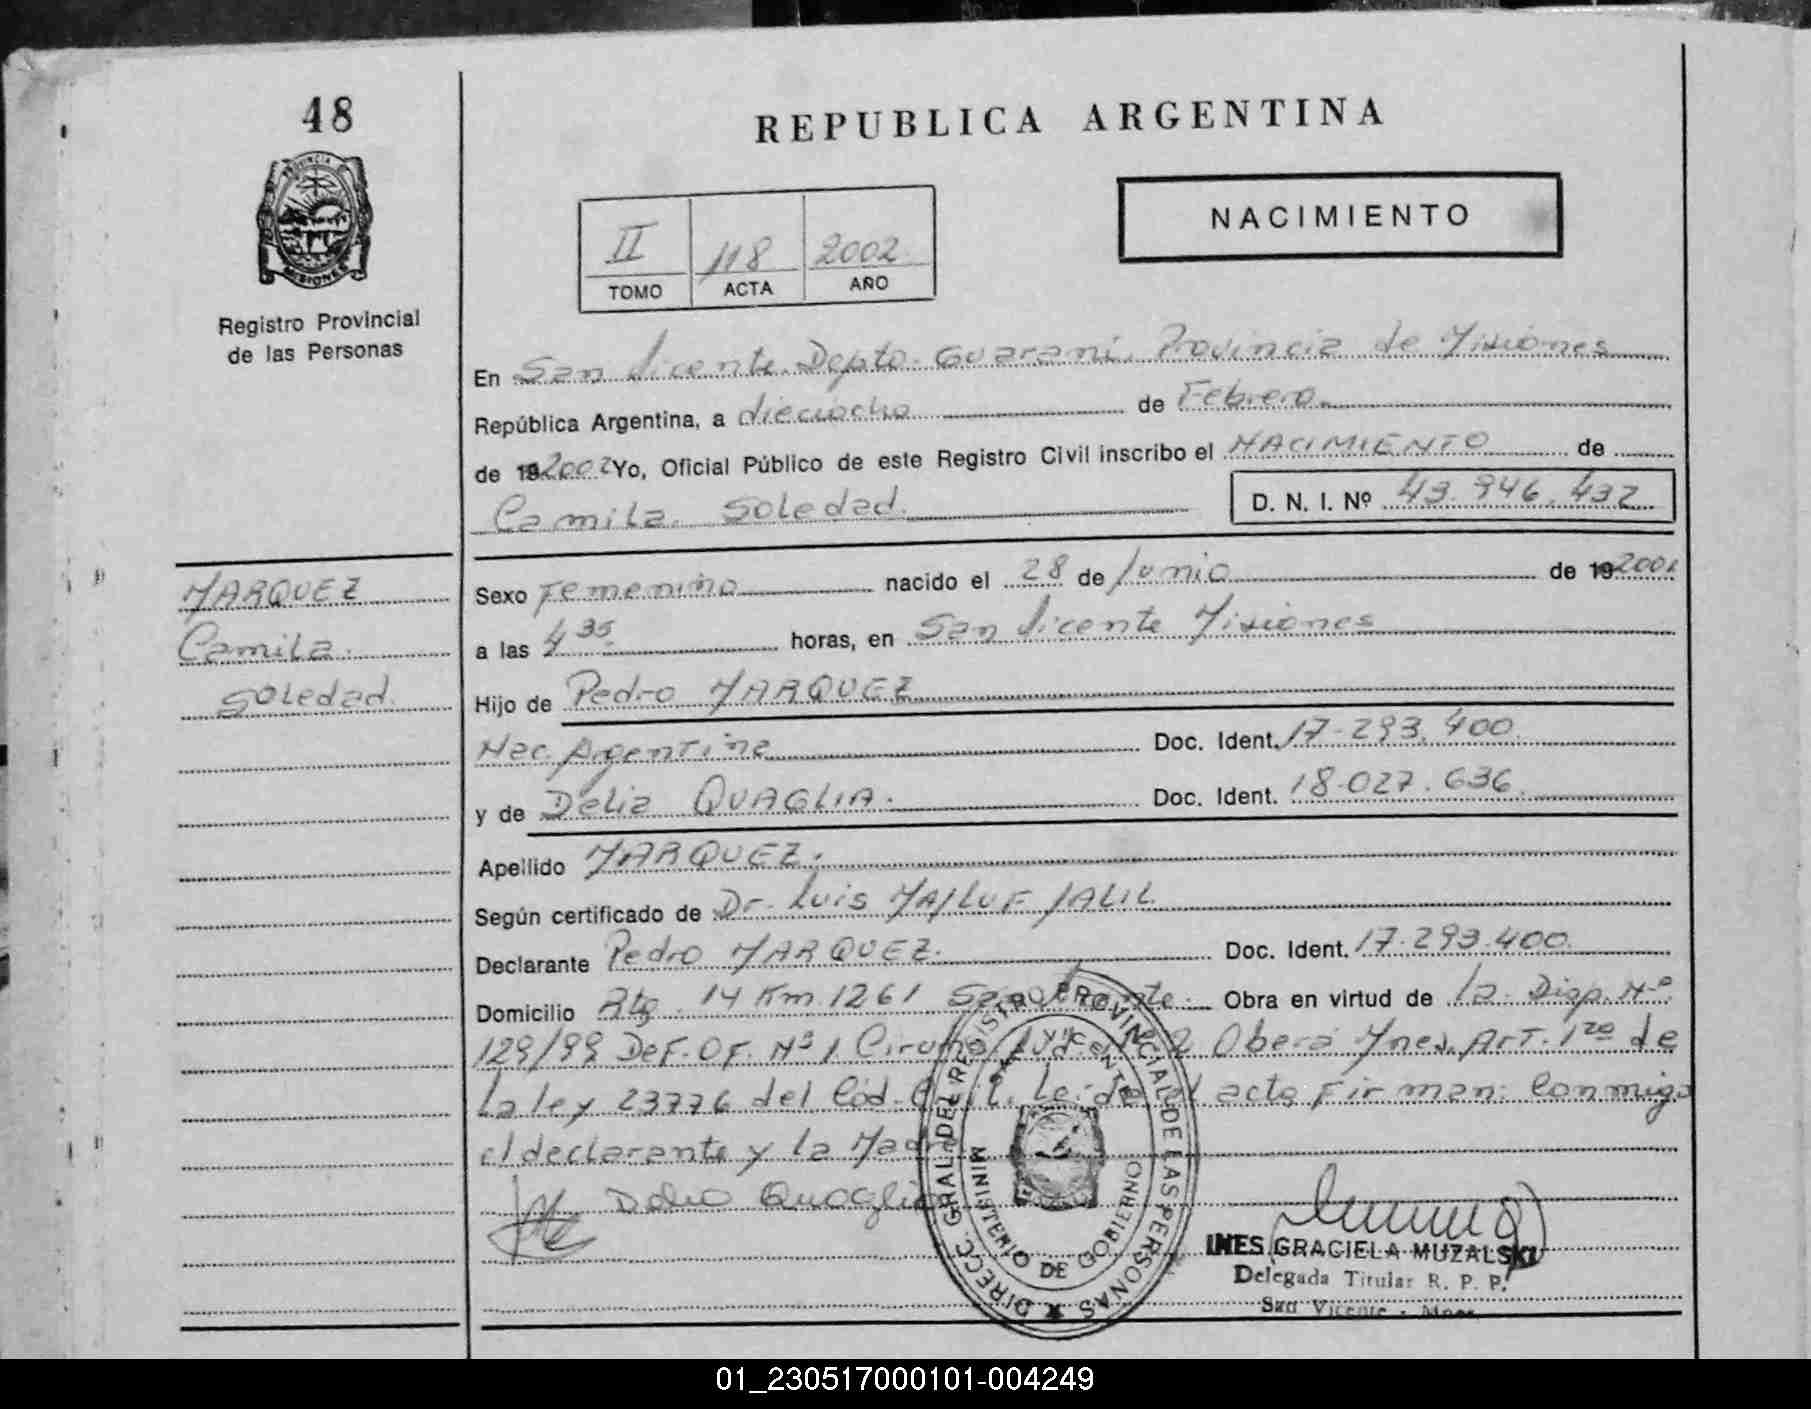 48
REPUBLICA ARGENTINA
NACIMIENTO
PROVINCIA DE
MISIONES
Registro Provincial
de las Personas
II 118 2002
TOMO ACTA AÑO
En San Vicente. Depto. Guaraní. Provincia de Misiones
República Argentina, a dieciocho de Febrero.
de 19 2002 Yo, Oficial Público de este Registro Civil inscribo el NACIMIENTO de
Camila Soledad. D. N. I. Nº 43.946.432
MARQUEZ
Camila
Soledad.
Sexo Femenino nacido el 28 de Junio de 19
a las 4 35 horas, en San Vicente Misiones
Hijo de Pedro MARQUEZ
Nac. Argentina Doc. Ident. 17.293.400
y de Delia QUAGLIA. Doc. Ident. 18.027.636
Apellido MARQUEZ.
Según certificado de Dr. Luis MAJLUF JALIL
Declarante Pedro MARQUEZ. Doc. Ident. 17.293.400
Domicilio Rta. 14 Km. 1261 San Vicente. Obra en virtud de la Disp. Nº
129/99 DEF. OF. Nº 1 Obera Mnes. ART. 1ro de
La ley 23776 del Cód. Civil. Leida el acta Firman Conmigo
el declarante y la Madre
Delia Quaglia
DIRECC. GRAL. DEL REGISTRO PROVINCIAL DE LAS PERSONAS
MINISTERIO DE GOBIERNO
INES GRACIELA MUZALSKI
Delegada Titular R. P. P.
San Vicente - Mnes.
01_230517000101-004249